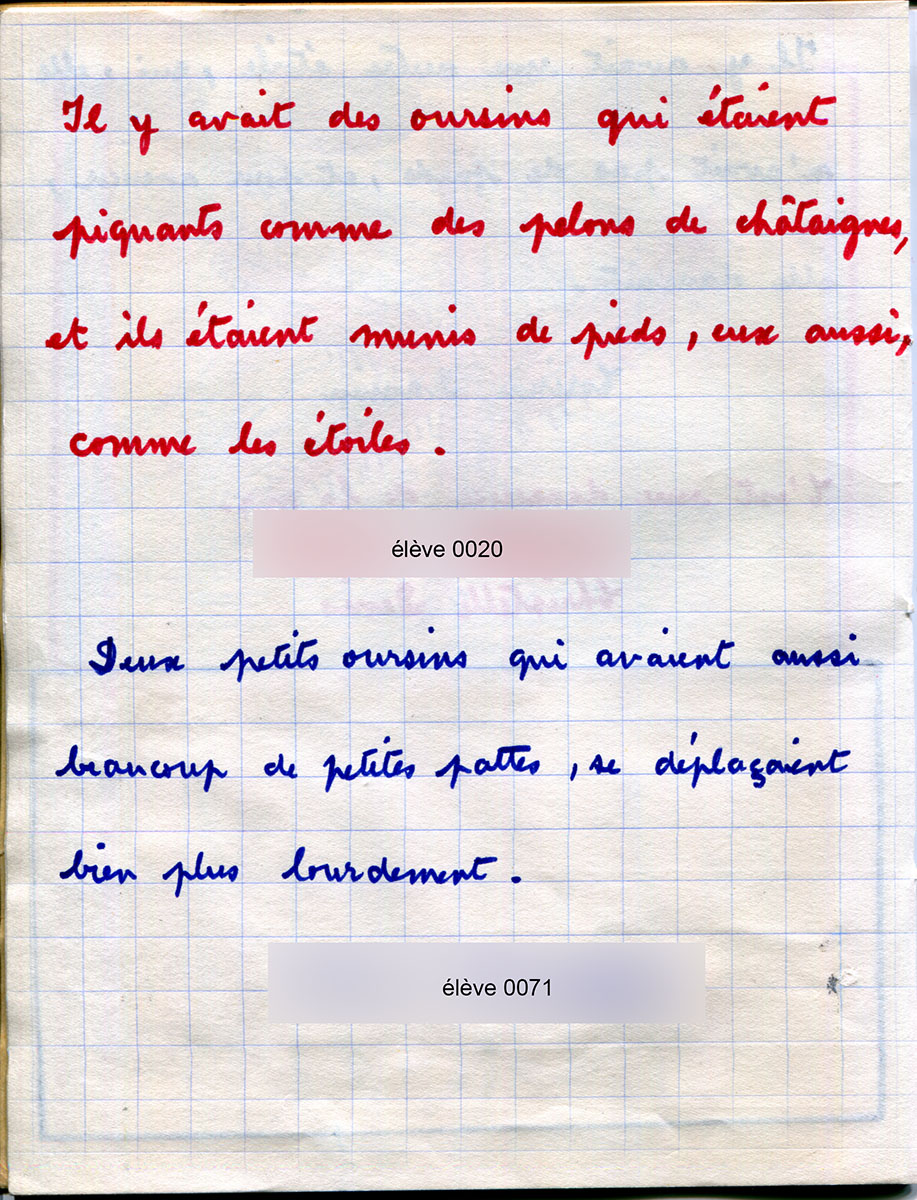 Il y avait des oursins qui étaient
piquants comme des pelons de châtaignes,
et ils étaient munis de pieds, eux aussi,
comme les étoiles.
élève 0020
Deux petits oursins qui avaient aussi
beaucoup de petites pattes, se déplaçaient
bien plus lourdement.
élève 0071